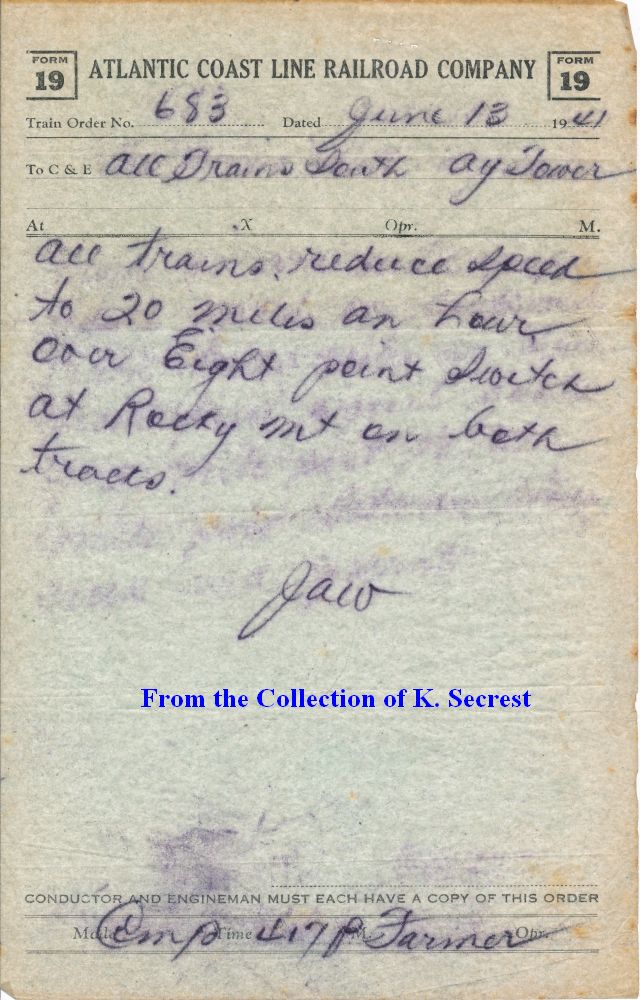 FORM 19 ATLANTIC COAST LINE RAILROAD COMPANY FORM 19
Train Order No. 683 Dated June 13 1941
To C & E All Trains South Ay Tower
At X Opr. M.
All trains reduce speed
to 20 miles an hour
over Eight point switch
at Rocky Mt on both
tracks.
JAW
From the Collection of K. Secrest
CONDUCTOR AND ENGINEMAN MUST EACH HAVE A COPY OF THIS ORDER
Made Comp Time 417 P M. Farmer Opr.